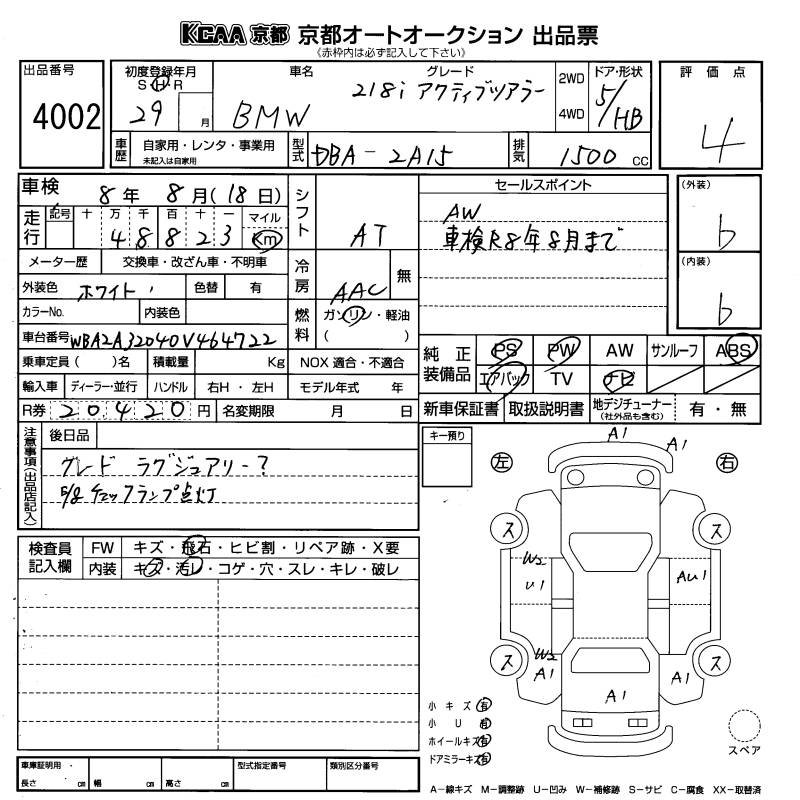 KCAA 京都 京都オートオークション 出品票
《赤枠内は必ず記入して下さい》
出品番号 4002
初度登録年月 S H R 29 月
車名 BMW
グレード 218i アクティブツアラー
2WD 4WD
ドア・形状 5/HB
評価点 4
車歴 自家用・レンタ・事業用 未記入は自家用
型式 DBA-2A15
排気 1500 CC
車検 8年 8月(18日)
走行 記号 十 万 千 百 十 一 マイル Km
4 8 8 2 3
シフト AT
セールスポイント
AW
車検R8年8月まで
(外装) b
(内装) b
メーター歴 交換車・改ざん車・不明車
冷房 AAC 無
外装色 ホワイト 色替 有
カラーNo. 内装色
燃料 ガソリン・軽油 ( )
車台番号 WBA2A32040V464722
純正装備品 PS PW AW サンルーフ ABS
エアバック TV ナビ
乗車定員( )名 積載量 Kg NOX 適合・不適合
輸入車 ディーラー・並行 ハンドル 右H・左H モデル年式 年
R券 20420円 名変期限 月 日
新車保証書 取扱説明書 地デジチューナー (社外品も含む) 有・無
注意事項(出品店記入) 後日品
グレード ラグジュアリー?
5/8 チェックランプ点灯
キー預り
検査員記入欄 FW キズ・飛石・ヒビ割・リペア跡・X要
内装 キズ・汚レ・コゲ・穴・スレ・キレ・破レ
A1
A1
左 右
ス ス
W2
U1
AU1
ス ス
W2
A1
A1
A1
小キズ 有
小U 有
ホイールキズ 有
ドアミラーキズ 有
スペア
車庫証明用・長さ cm 幅 cm 高さ cm
型式指定番号 類別区分番号
A−線キズ M−調整跡 U−凹み W−補修跡 S−サビ C−腐食 XX−取替済